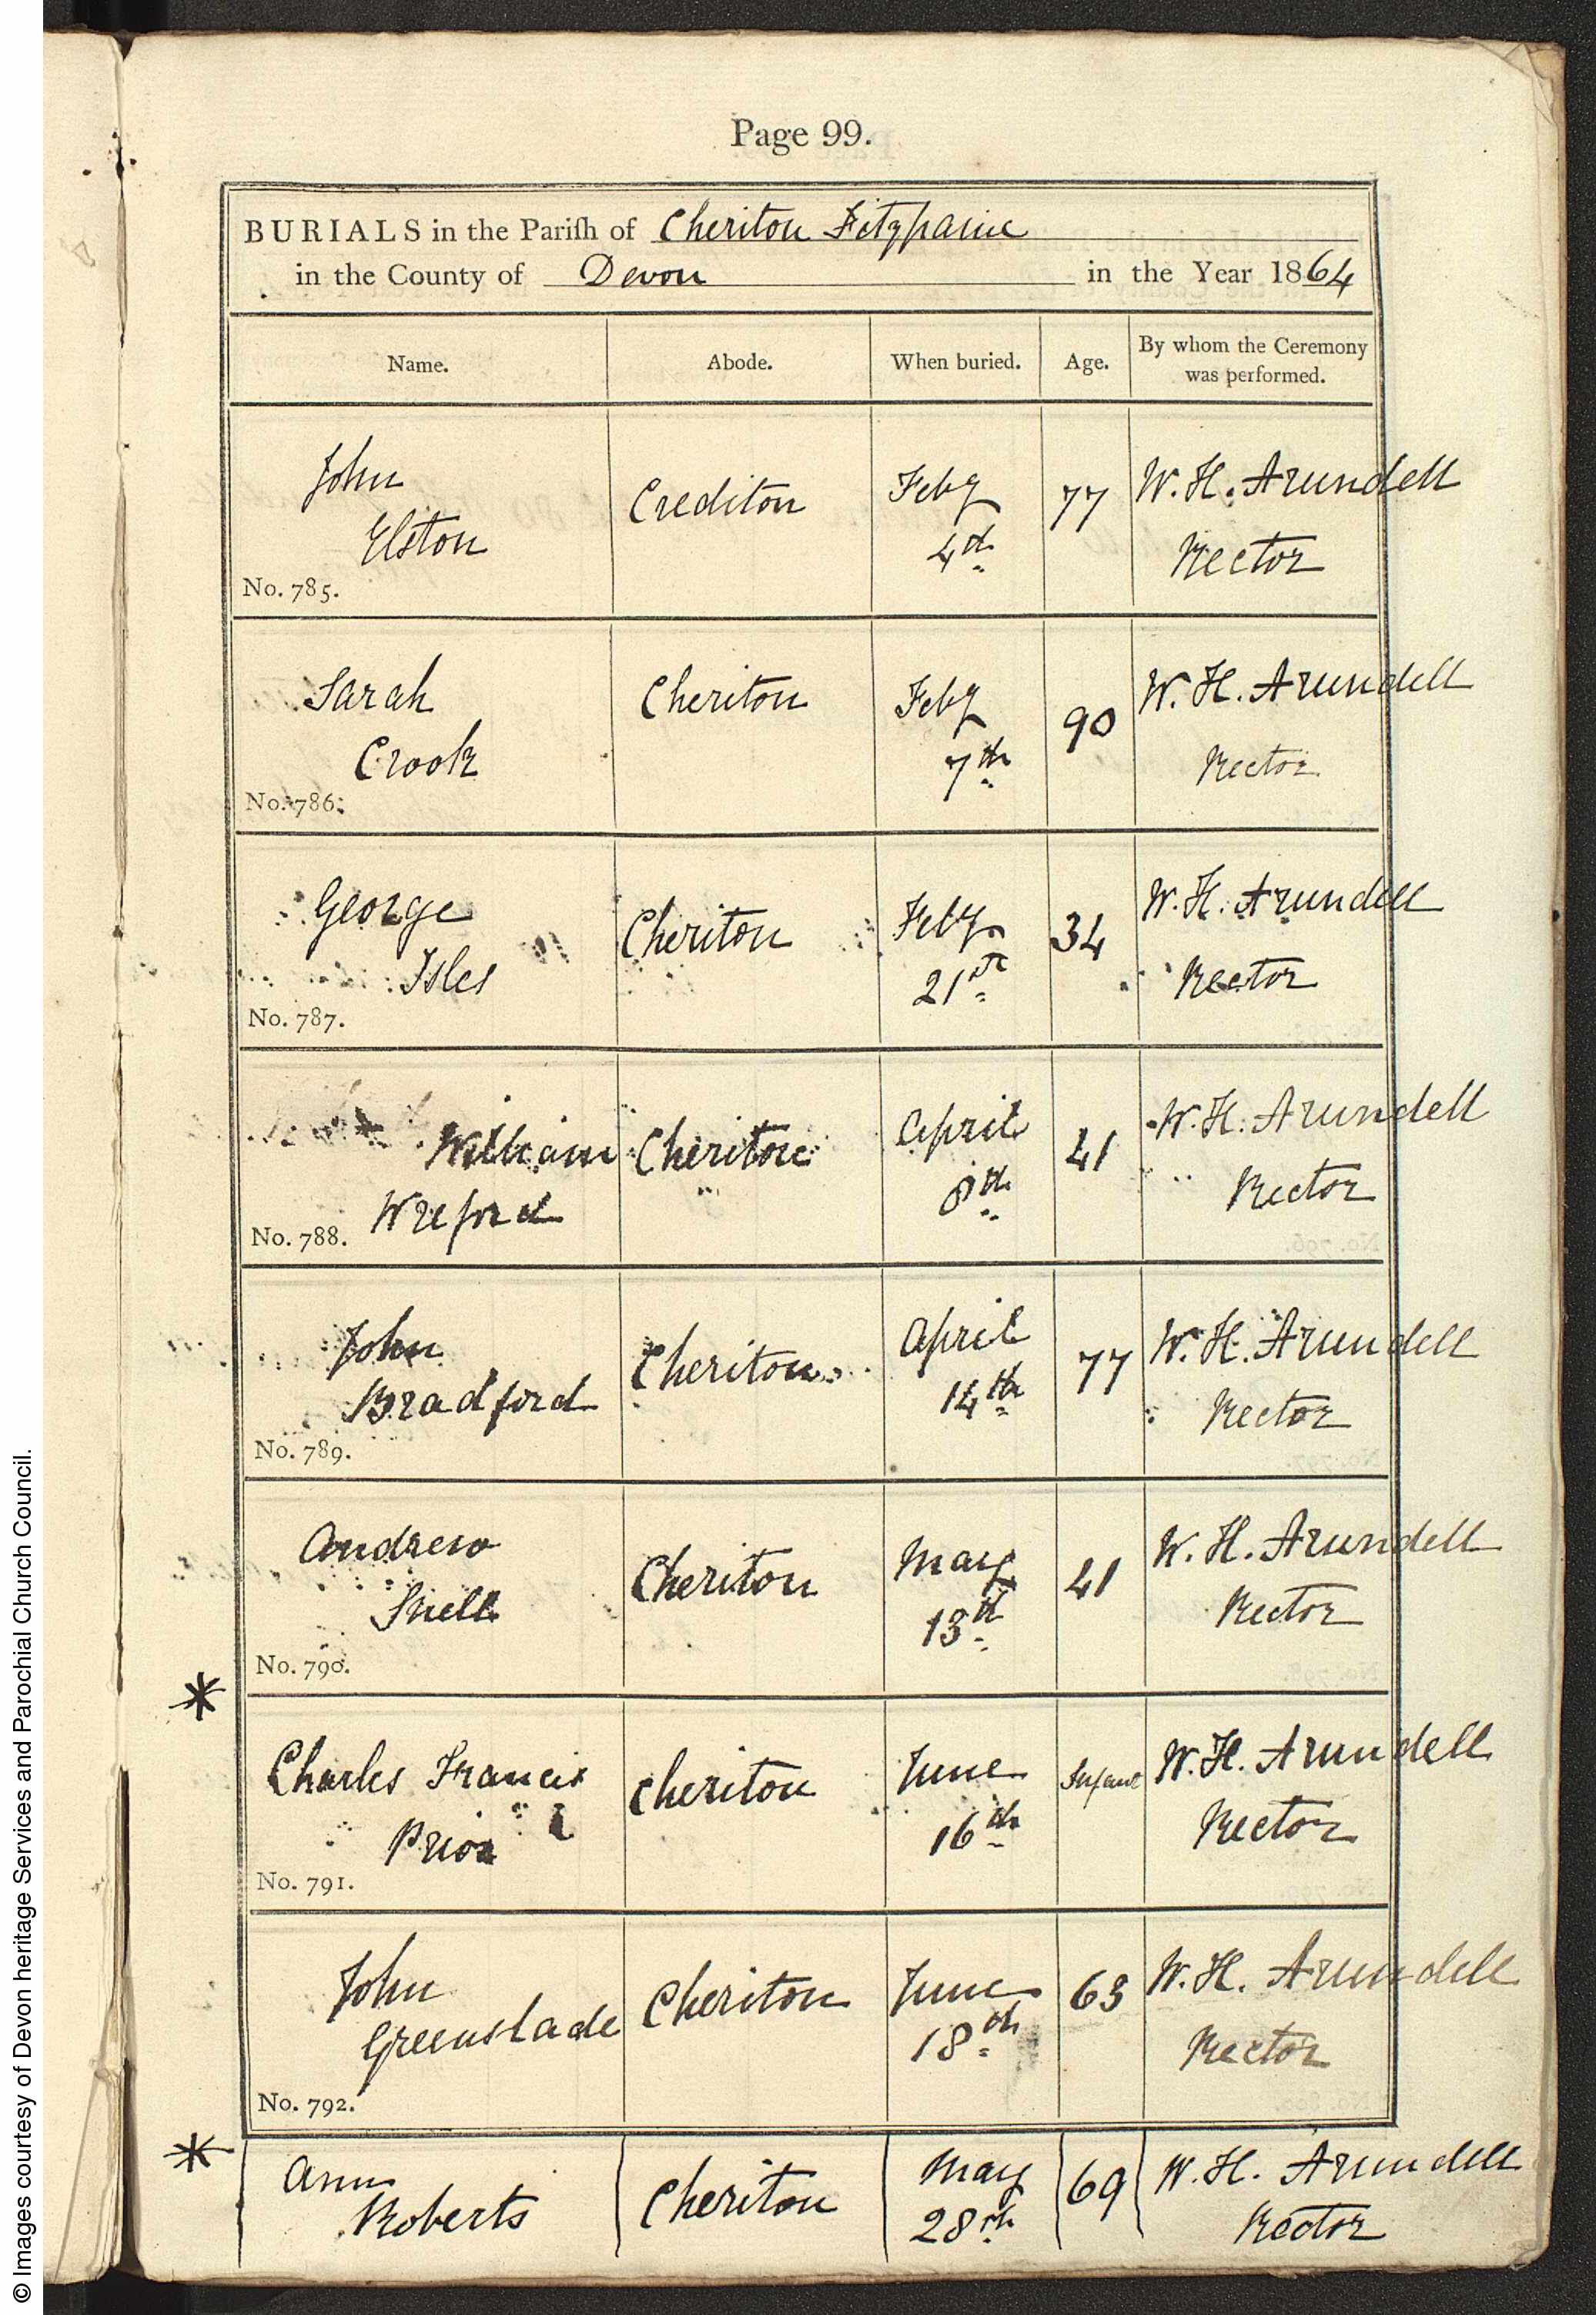 Page 99.
BURIALS in the Pariſh of Cheriton Fitzpaine
in the County of Devon in the Year 1864
Name. Abode. When buried. Age. By whom the Ceremony was performed.
John Crediton Feby 77 W. H. Arundell
Elston 4th Rector
No. 785.
Sarah Cheriton Feby 90 W. H. Arundell
Crook 7th Rector
No. 786.
George Cheriton Feby 34 W. H. Arundell
Isles 21st Rector
No. 787.
William Cheriton April 41 W. H. Arundell
Wreford 8th Rector
No. 788.
John Cheriton April 77 W. H. Arundell
Bradford 14th Rector
No. 789.
Andrew Cheriton May 41 W. H. Arundell
Snell 13th Rector
No. 790.
*
Charles Francis Cheriton June Infant W. H. Arundell
Prior 16th Rector
No. 791.
John Cheriton June 63 W. H. Arundell
Greenslade 18th Rector
No. 792.
*
Ann Cheriton May 69 W. H. Arundell
Roberts 28th Rector
© Images courtesy of Devon heritage Services and Parochial Church Council.